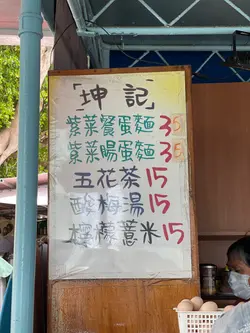 「坤記」
紫菜餐蛋麵 36
紫菜腸蛋麵 36
五花茶 15
酸梅湯 15
檸檬薏米 15